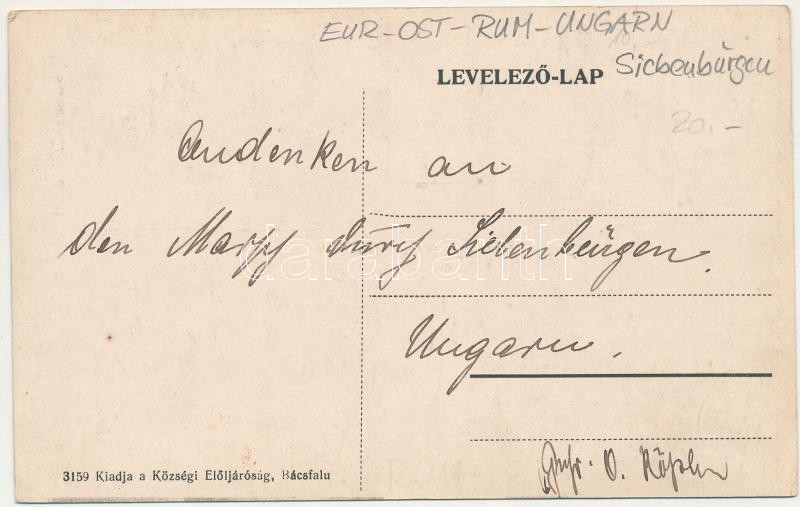 EUR-OST-RUM-UNGARN
LEVELEZŐ-LAP
Siebenbürgen
20.-
Andenken an
den Marsch durch Siebenbürgen.
darabanth
Ungarn.
O.
3159 Kiadja a Községi Előljáróság, Bácsfalu